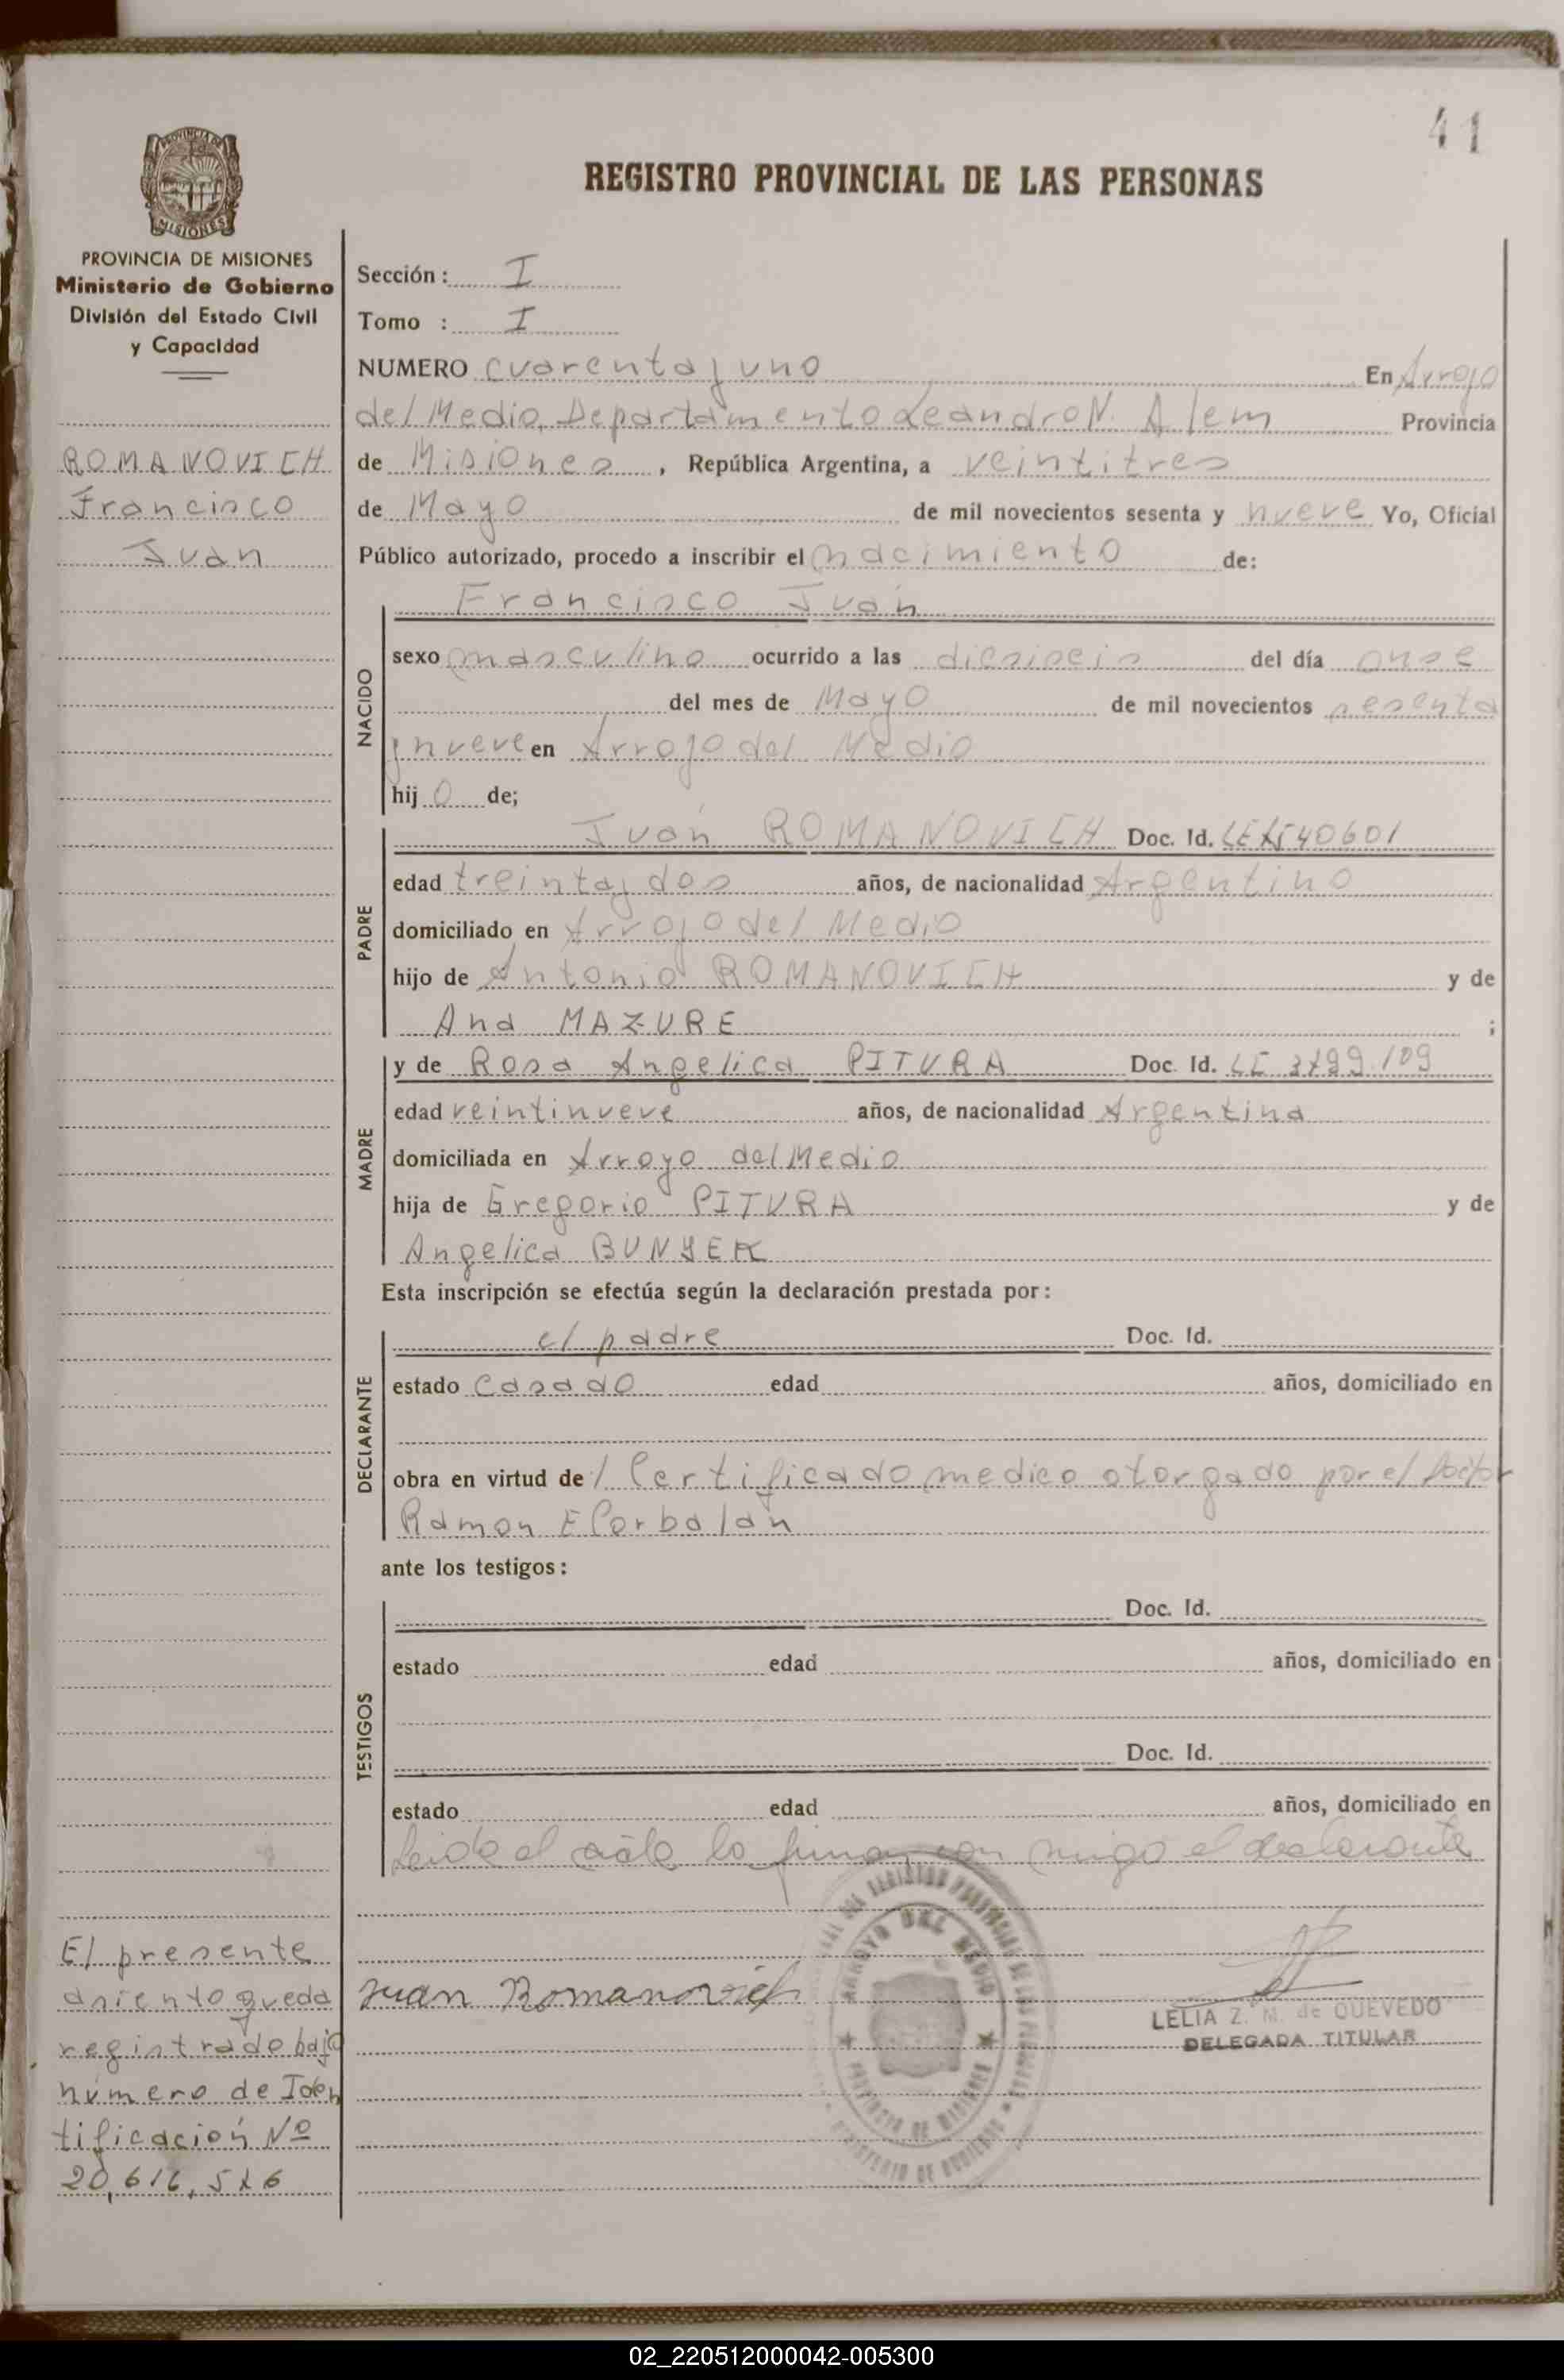 41
REGISTRO PROVINCIAL DE LAS PERSONAS
PROVINCIA DE MISIONES
MISIONES
PROVINCIA DE MISIONES
Ministerio de Gobierno
División del Estado Civil
y Capacidad
ROMANOVICH
Francisco
Juan
Sección : I
Tomo : I
NUMERO cuarenta y uno En Arroyo
del Medio, Departamento Leandro N. Alem Provincia
de Misiones , República Argentina, a veintitres
de Mayo de mil novecientos sesenta y nueve Yo, Oficial
Público autorizado, procedo a inscribir el nacimiento de:
Francisco Juan
NACIDO
sexo masculino ocurrido a las diesiseis del día onse
del mes de Mayo de mil novecientos sesenta
y nueve en Arroyo del Medio
hij o de;
PADRE
Juan ROMANOVICH Doc. Id. LE
edad treinta y dos años, de nacionalidad Argentino
domiciliado en Arroyo del Medio
hijo de Antonio ROMANOVICH y de
Ana MAZURE ;
MADRE
y de Rosa Angelica PITURA Doc. Id.
edad veintinueve años, de nacionalidad Argentina
domiciliada en Arroyo del Medio
hija de Gregorio PITURA y de
Angelica BUNYEK
Esta inscripción se efectúa según la declaración prestada por :
DECLARANTE
el padre Doc. Id.
estado Casado edad años, domiciliado en
obra en virtud de l Certificado medico otorgado por el Doctor
Ramon E Corbalan
ante los testigos :
TESTIGOS
Doc. Id.
estado edad años, domiciliado en
Doc. Id.
estado edad años, domiciliado en
Leida el acta la firman con migo el declarante
Juan Romanovich
ARROYO DEL MEDIO
PROVINCIA DE MISIONES
MINISTERIO DE GOBIERNO
LELIA Z. M. de QUEVEDO
DELEGADA TITULAR
El presente
asiento queda
registrado bajo
número de Iden
tificación Nº
02_220512000042-005300